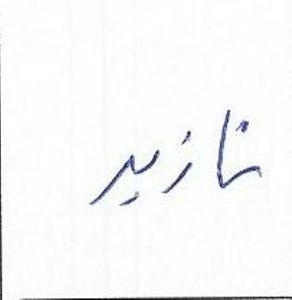 نازیر